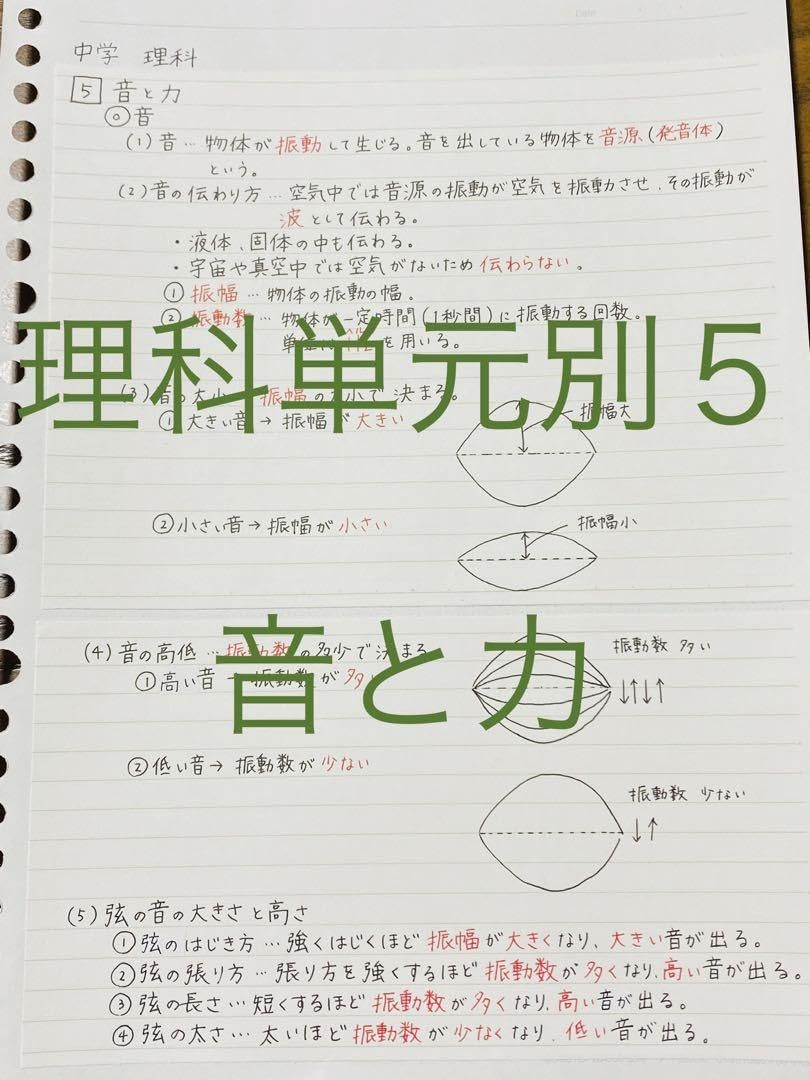 中学 理科
5 音と力
◎音
(1)音…物体が振動して生じる。音を出している物体を音源(発音体)
という。
(2)音の伝わり方…空気中では音源の振動が空気を振動させ、その振動が
波として伝わる。
・液体、固体の中も伝わる。
・宇宙や真空中では空気がないため伝わらない。
①振幅…物体の振動の幅。
②振動数…物体が一定時間(1秒間)に振動する回数。
を用いる。
理科単元別5
(3)音の大小…振幅の大小で決まる。
①大きい音→振幅が大きい
振幅大
②小さい音→振幅が小さい
振幅小
(4)音の高低…振動数の多少で決まる
振動数 多い
①高い音→振動数が多い
音と力
②低い音→振動数が少ない
振動数 少ない
(5)弦の音の大きさと高さ
①弦のはじき方…強くはじくほど振幅が大きくなり、大きい音が出る。
②弦の張り方…張り方を強くするほど振動数が多くなり、高い音が出る。
③弦の長さ…短くするほど振動数が多くなり、高い音が出る。
④弦の太さ…太いほど振動数が少なくなり、低い音が出る。